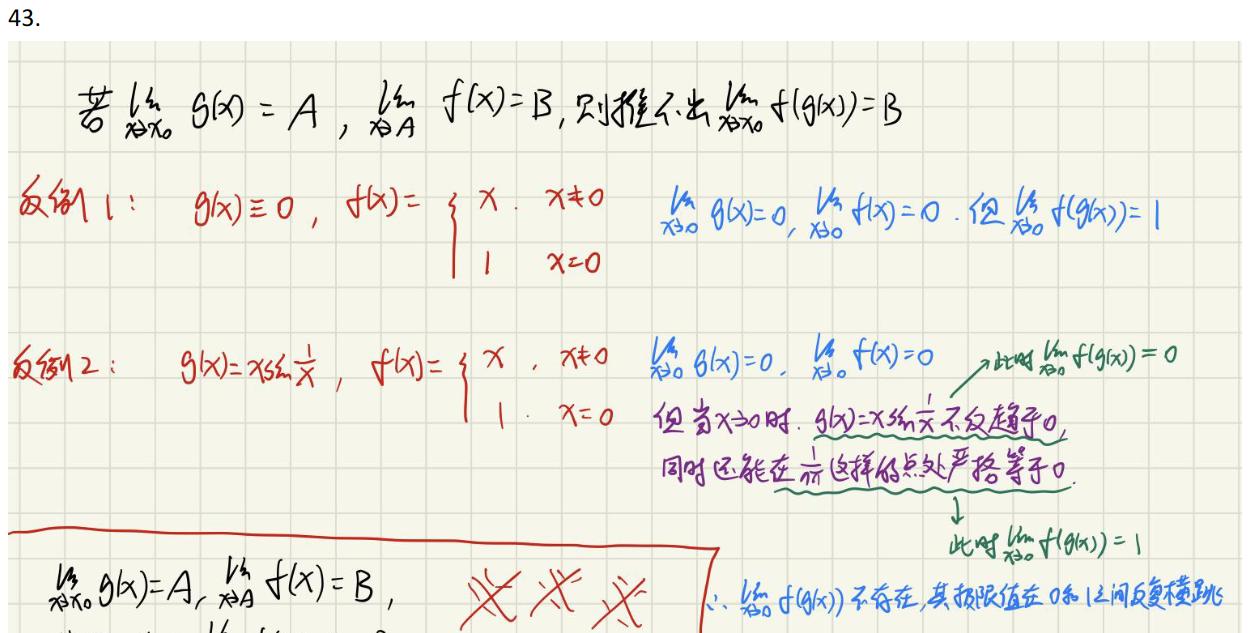 43.
若 lim x→x₀ g(x) = A , lim x→A f(x) = B , 则推不出 lim x→x₀ f(g(x)) = B
反例 1 : g(x) ≡ 0 , f(x) = { x . x≠0 lim x→0 g(x)=0, lim x→0 f(x)=0 . 但 lim x→0 f(g(x)) = 1
1 x=0
反例 2 : g(x)= x sin 1/x , f(x) = { x , x≠0 lim x→0 g(x)=0 , lim x→0 f(x)=0 →此时 lim x→0 f(g(x)) = 0
1 . x=0 但当x→0时. g(x)=x sin 1/x 不仅趋于0,
同时还能在 1/nπ 这样的点处严格等于0.
↓
此时 lim x→0 f(g(x)) = 1
lim x→x₀ g(x)=A, lim x→A f(x)=B ,
∴ lim x→0 f(g(x)) 不存在,其极限值在 0和1之间反复横跳